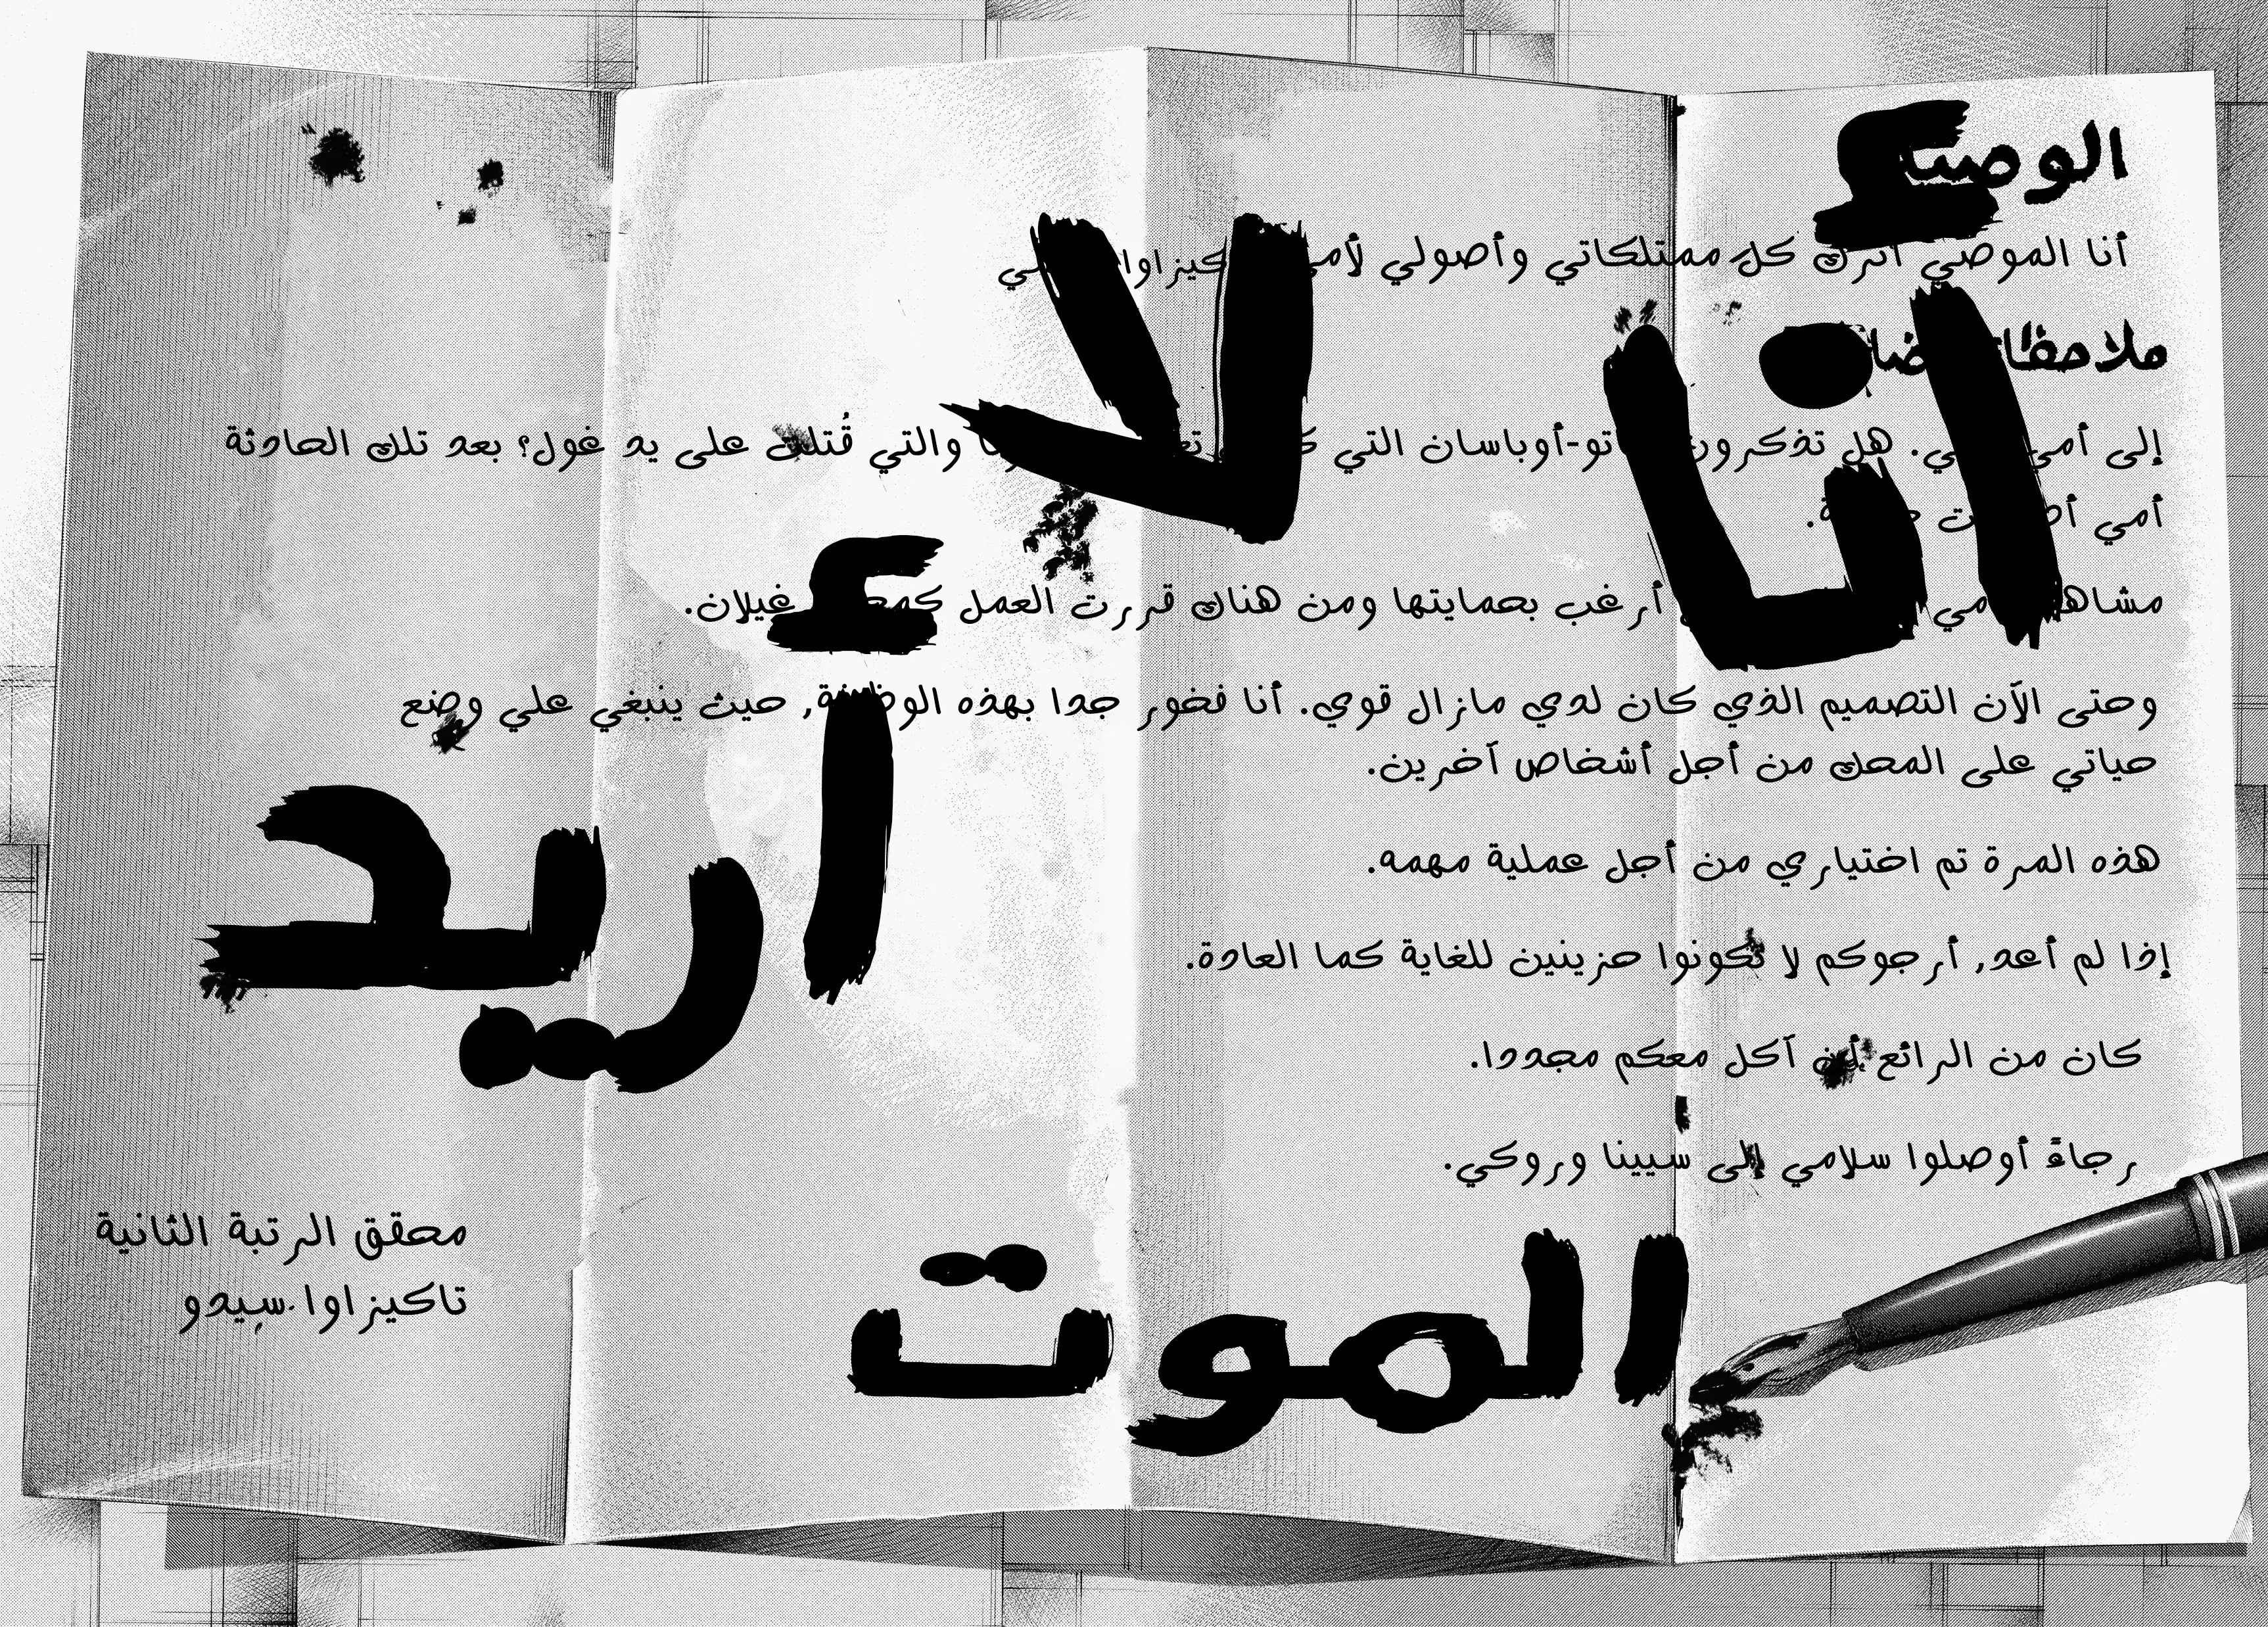 أنا الموصي أترك كل ممتلكاتي وأصولي لأمي
إلى أمي هل تذكرون التي والتي قُتلت على يد غول؟ بعد تلك الحادثة
أمي
أرغب بحمايتها ومن هناك قررت العمل غيلان.
وحتى الآن التصميم الذي كان لدي مازال قوي. أنا فخور جدا بهذه الوظيفة, حيث ينبغي علي وضع
حياتي على المحك من أجل أشخاص آخرين.
هذه المرة تم اختياري من أجل عملية مهمه.
إذا لم أعد, أرجوكم لا تكونوا حزينين للغاية كما العادة.
كان من الرائع أن آكل معكم مجددا.
رجاءً أوصلوا سلامي إلى سيينا وروكي.
محقق الرتبة الثانية
تاكيزاوا.سيدو
أنا
لا
أريد
الموت